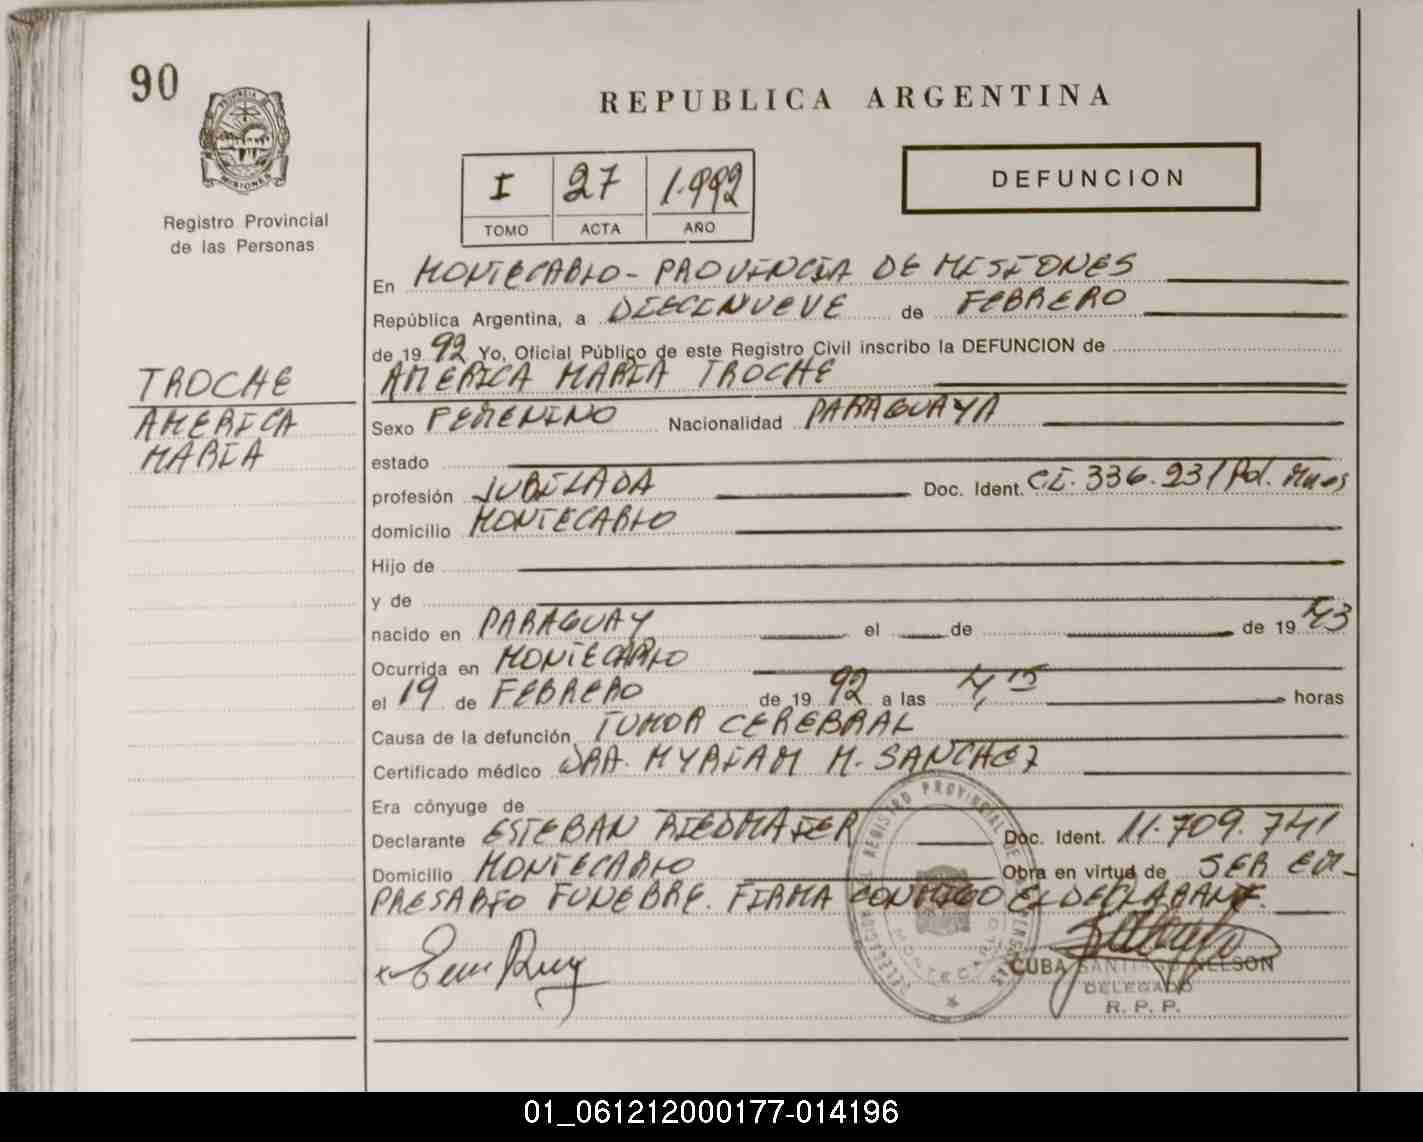 90
PROVINCIA DE
MISIONES
Registro Provincial
de las Personas
REPUBLICA ARGENTINA
I 27 1.992
TOMO ACTA AÑO
DEFUNCION
TROCHE
AMERICA
MARIA
En MONTECARLO - PROVINCIA DE MISIONES
República Argentina, a DIECINUEVE de FEBRERO
de 19 92 Yo, Oficial Público de este Registro Civil inscribo la DEFUNCION de
AMERICA MARIA TROCHE
Sexo FEMENINO Nacionalidad PARAGUAYA
estado
profesión JUBILADA Doc. Ident. CI. 336.231 Pol. Mnes
domicilio MONTECARLO
Hijo de
y de
nacido en PARAGUAY el de de 19 43
Ocurrida en MONTECARLO
el 19 de FEBRERO de 19 92 a las 4,15 horas
Causa de la defunción TUMOR CEREBRAL
Certificado médico DRA. MYRIAM M. SANCHEZ
Era cónyuge de
Declarante ESTEBAN RIEDMAIER Doc. Ident. 11.709.741
Domicilio MONTECARLO Obra en virtud de SER EM-
PRESARIO FUNEBRE. FIRMA CONMIGO EL DECLARANTE.
DELEGACION REGISTRO PROVINCIAL DE LAS PERSONAS
MONTECARLO
CUBA SANTIAGO NELSON
DELEGADO
R. P. P.
01_061212000177-014196